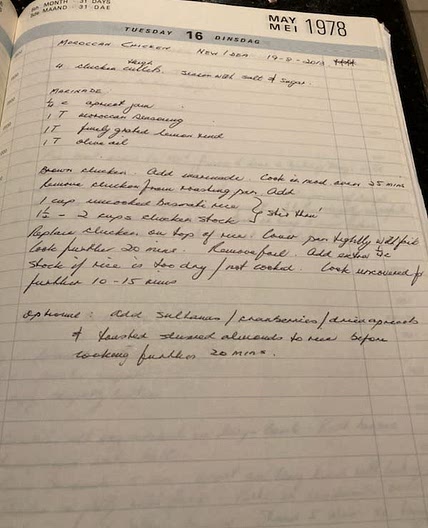 6th MONTH 31 DAYS
5de MAAND 31 DAE
MAY
MEI 1978
TUESDAY 16 DINSDAG
MOROCCAN CHICKEN NEW IDEA 19-8-2011
4 chicken thigh cutlets. Season with salt & sugar.
MARINADE
½ c apricot jam
1 T moroccan seasoning
1T finely grated lemon rind
1T olive oil
Brown chicken. Add marinade. Cook in mod oven 25 mins
Remove chicken from roasting pan. Add
1 cup uncooked Basmati rice } stir thru'
1½ - 2 cups chicken stock
Replace chicken on top of rice. Cover pan tightly with foil
Cook further 20 mins. Remove foil. Add extra ½c
stock if rice is too dry / not cooked. Cook uncovered for
further 10-15 mins
Optional: add sultanas / cranberries / dried apricots
& toasted slivered almonds to rice before
cooking further 20 mins.